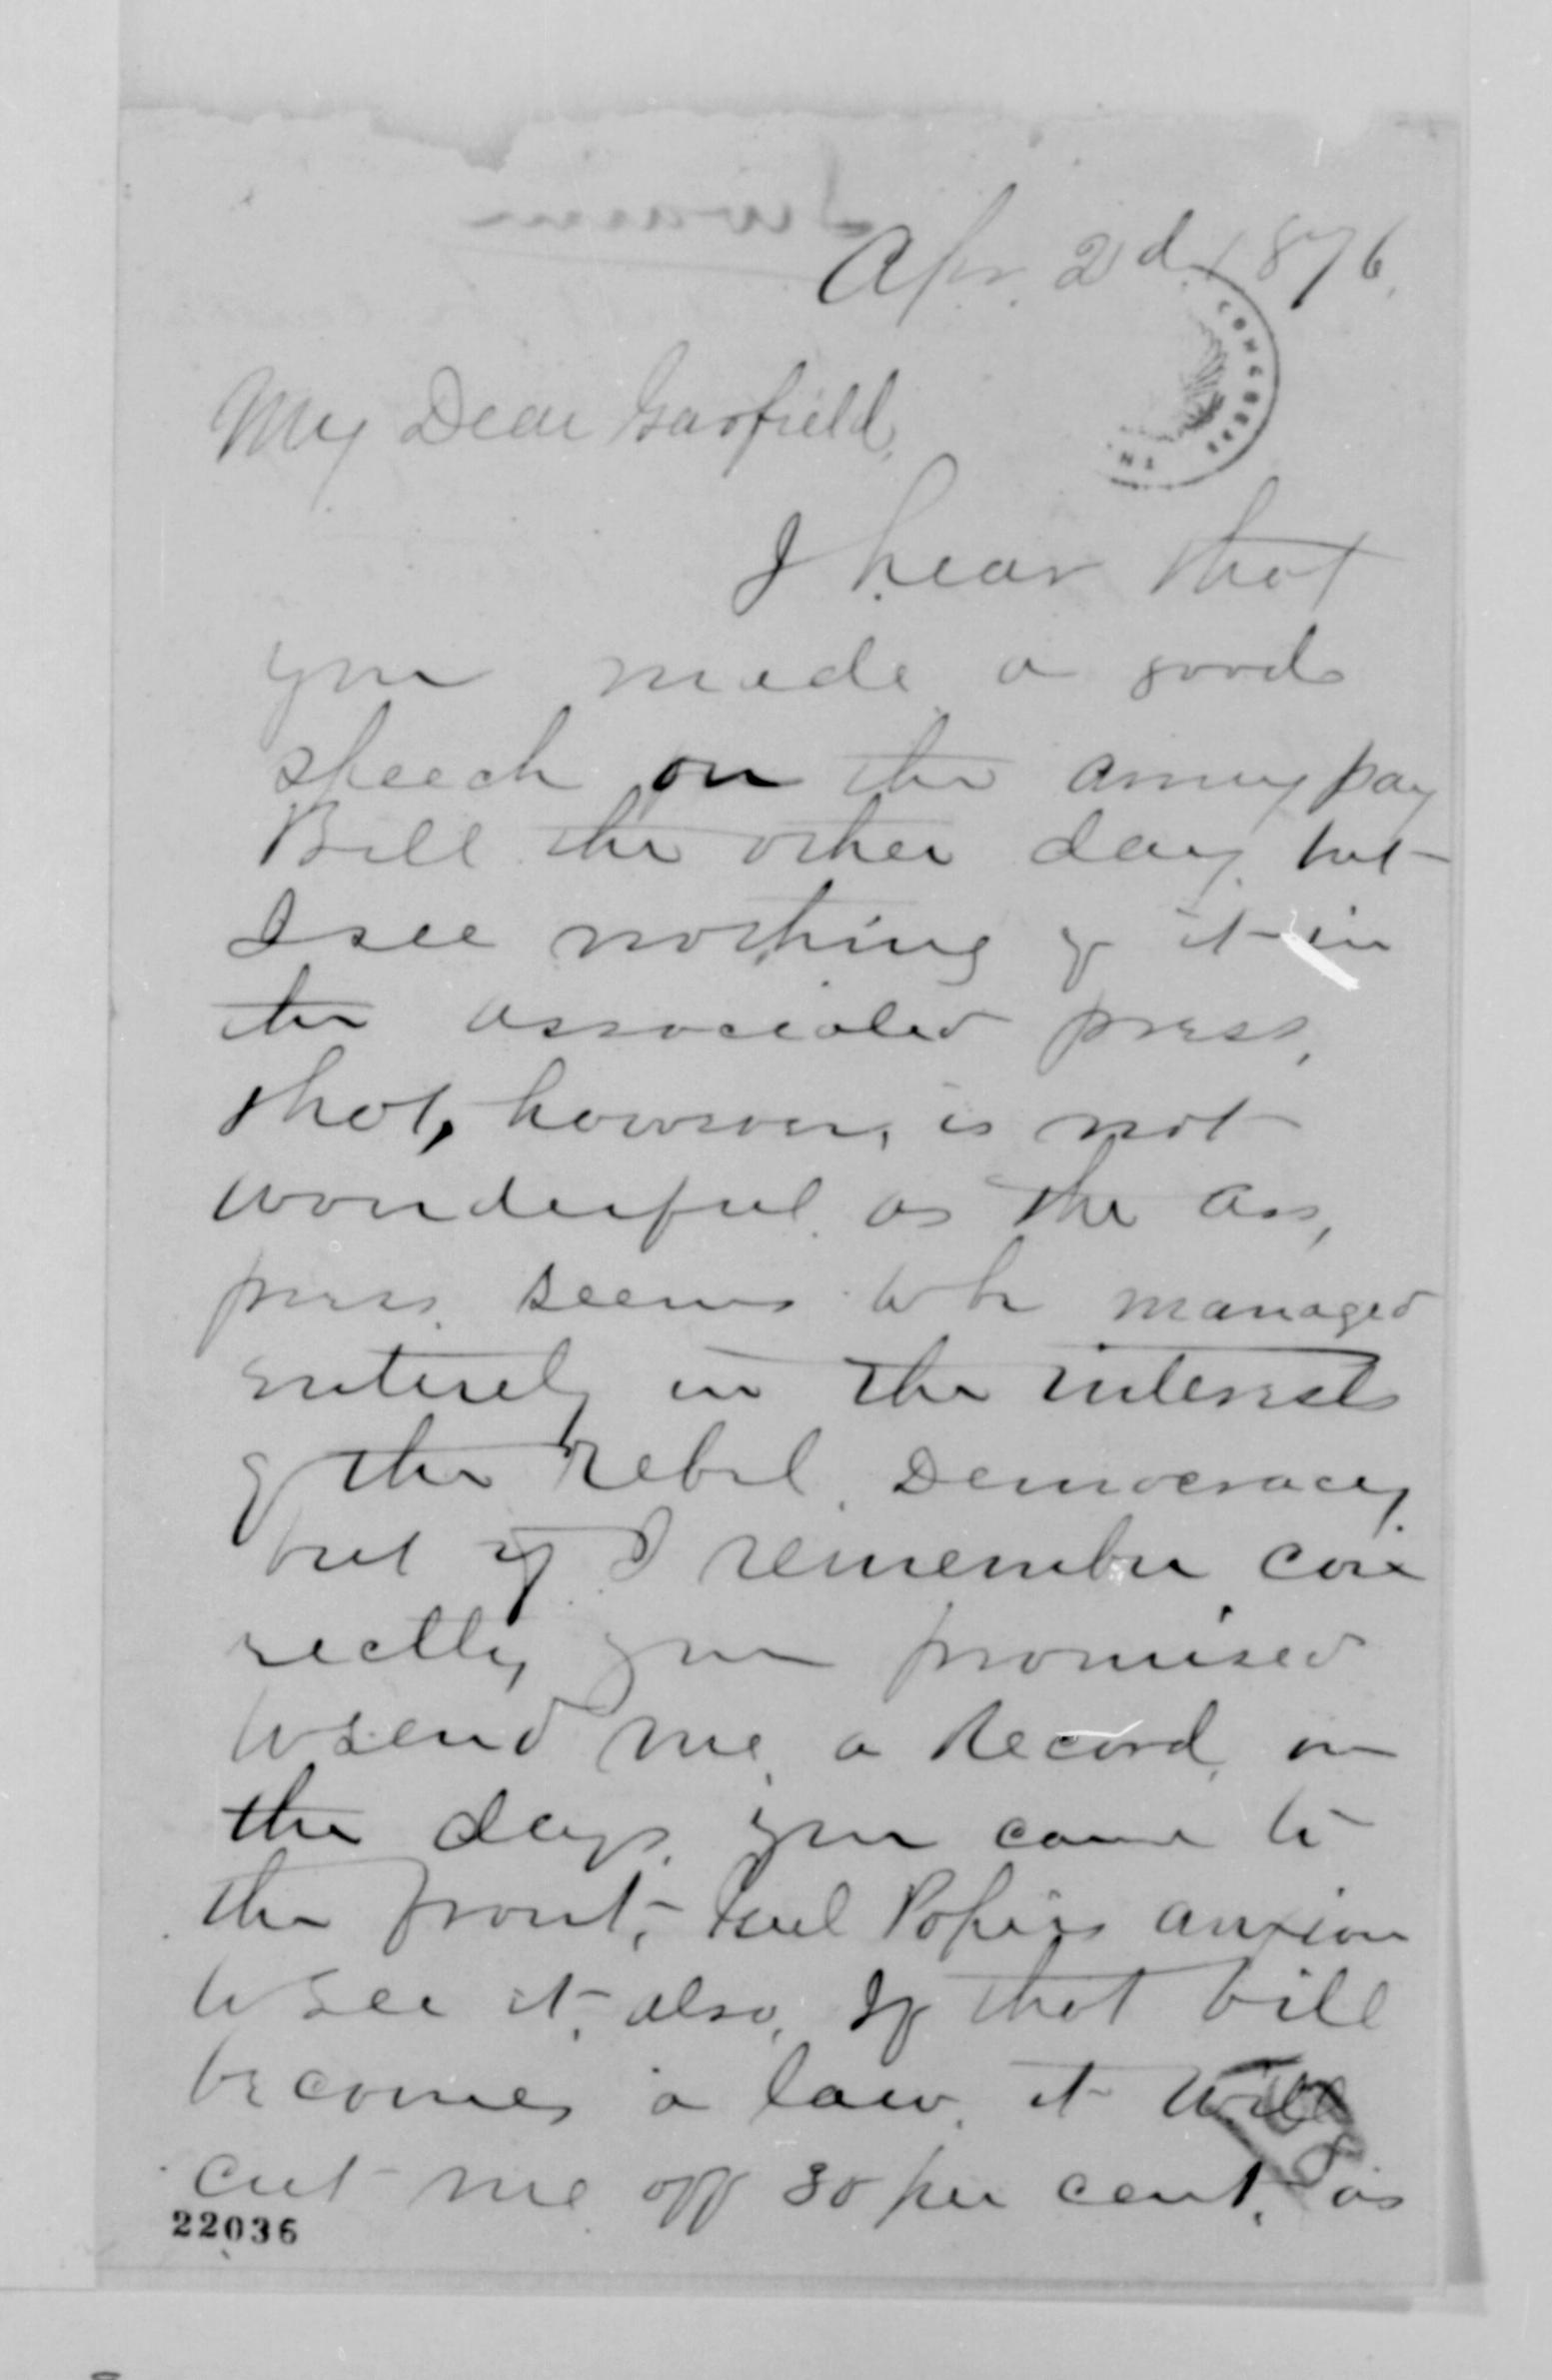 Apr. 2d. 1876.
My Dear Garfield,
I hear that
you made a good
speech on the army pay
Bill the other day but
I see nothing of it in
the associated press,
that, however, is not
wonderful as the ass,
press seems to be managed
entirely in the interests
of the rebel Democracy.
but if I remember cor
rectly, you promised
to send me a Record, on
the days you came to
the front, Genl Pope is anxious
to see it, also, If that bill
becomes a law, it will
cut me off 30 per cent, as
22036
CONGRESS